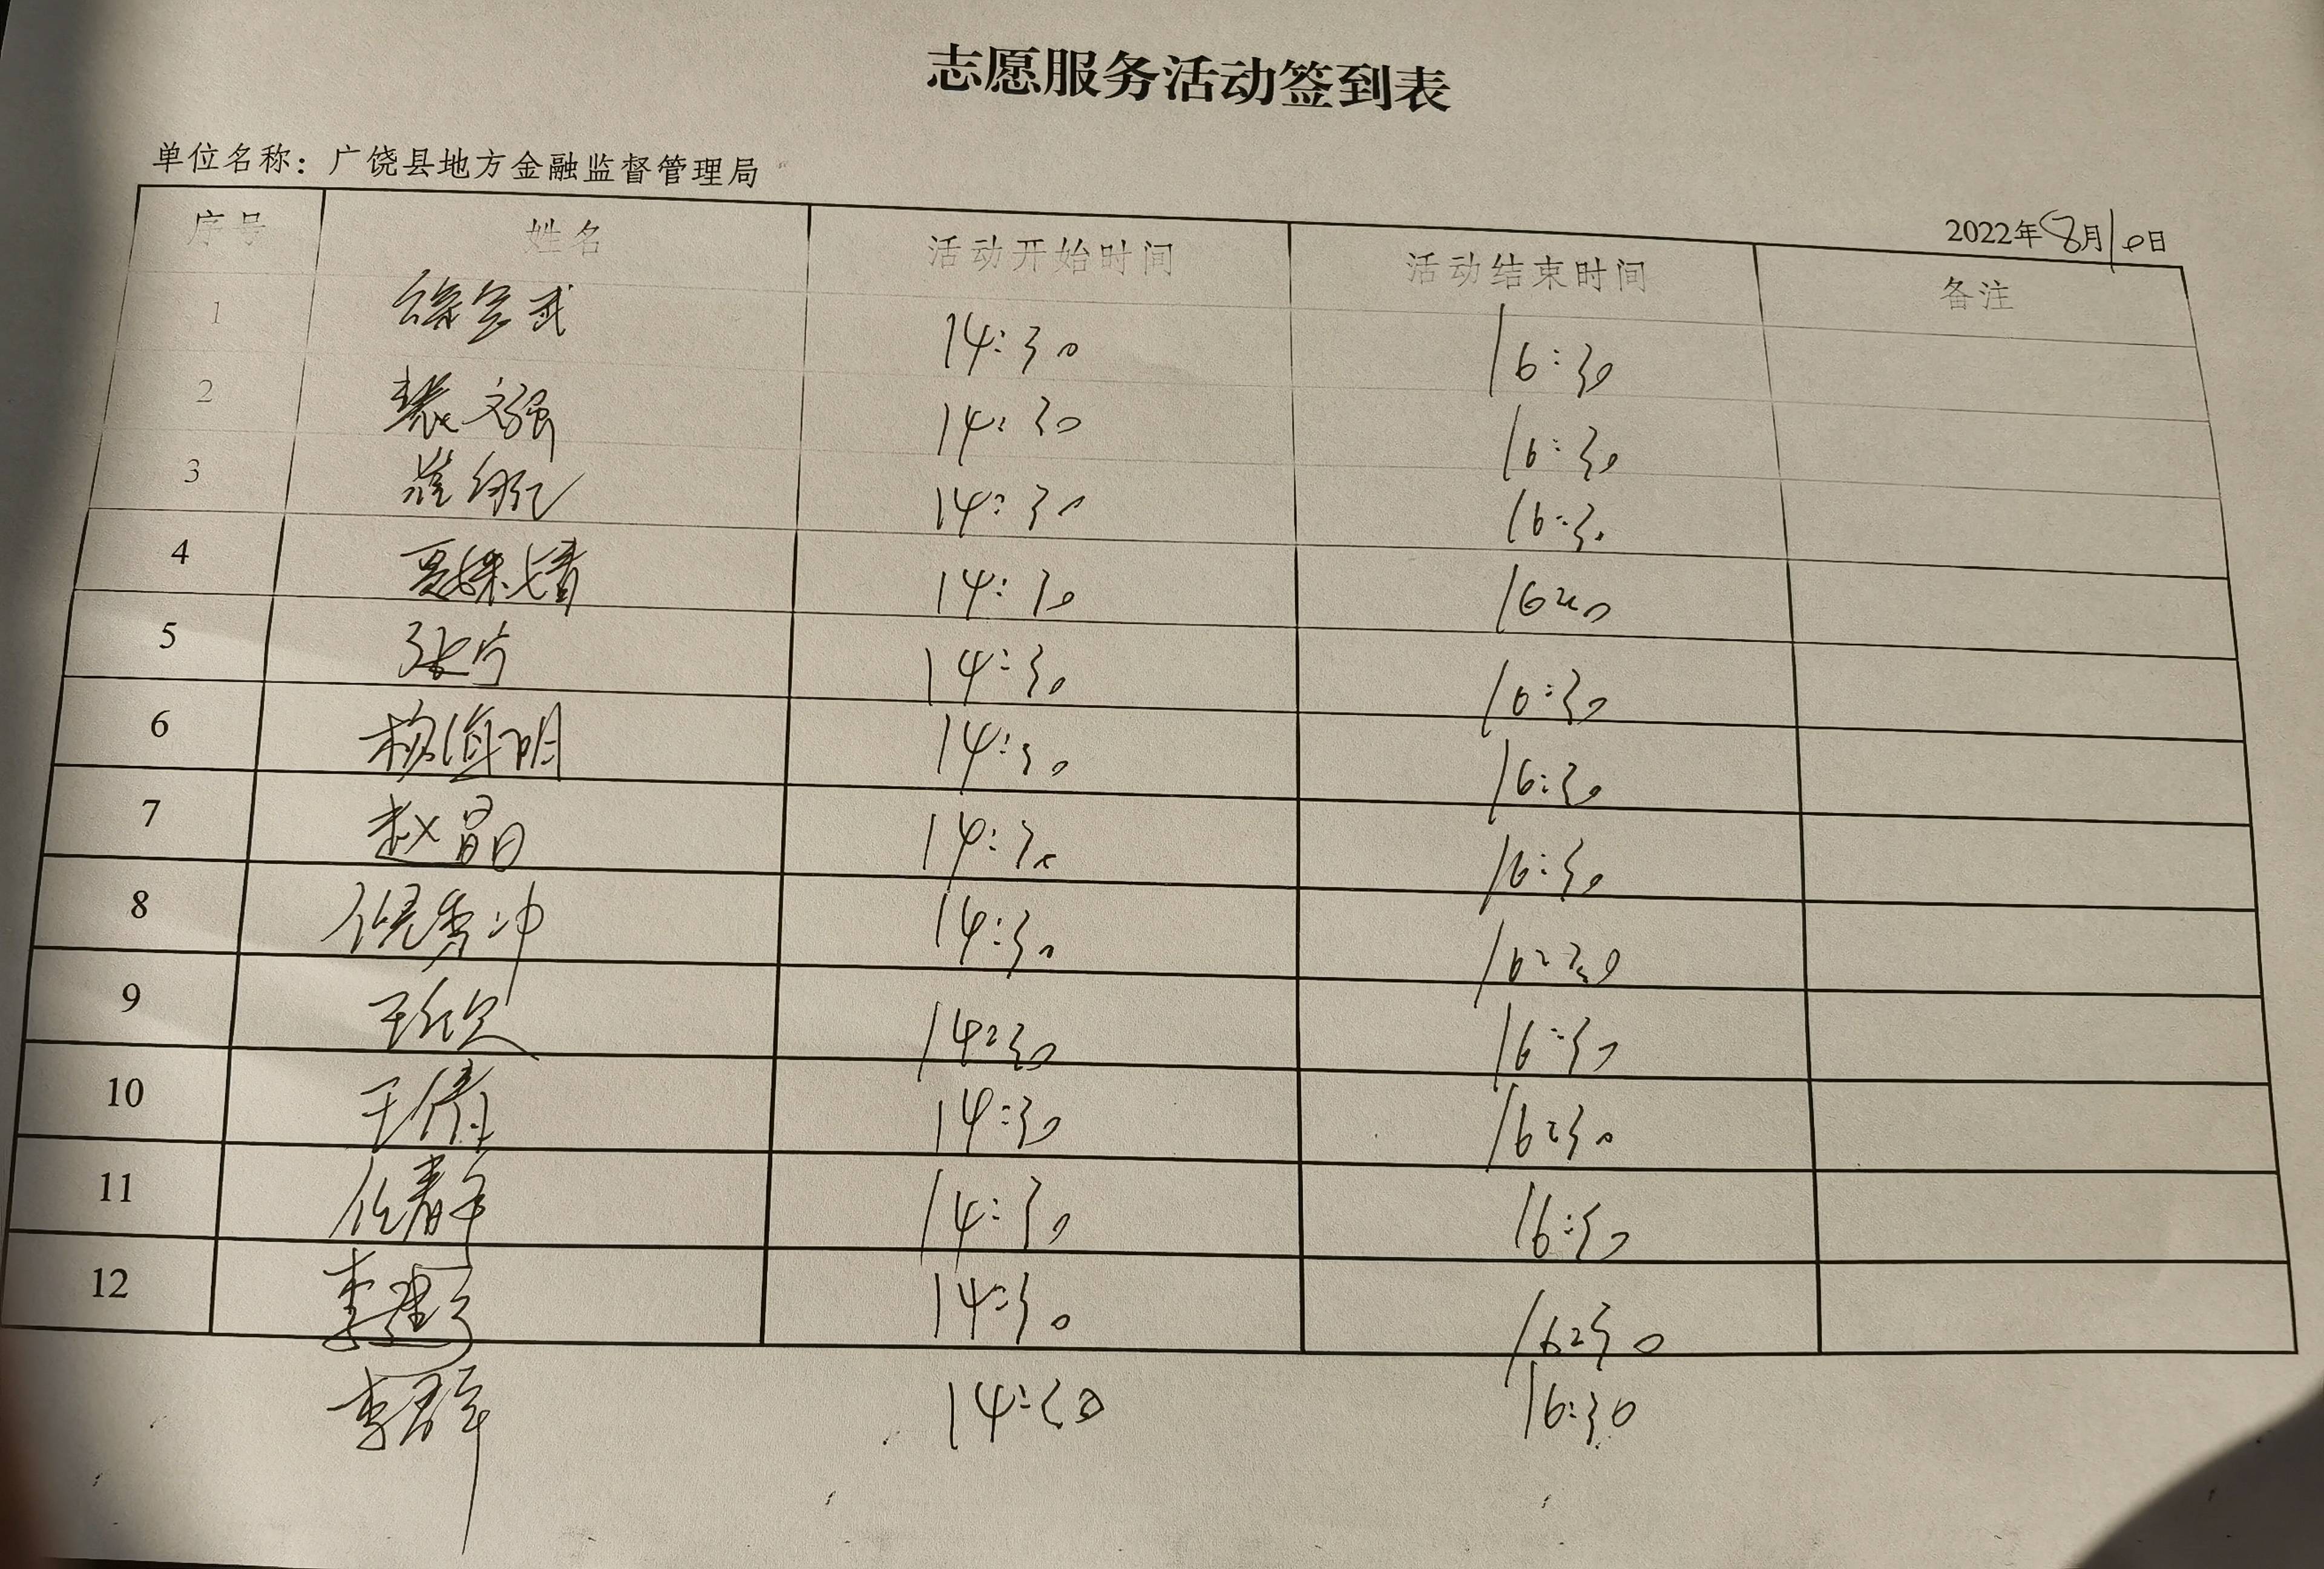 志愿服务活动签到表
单位名称：广饶县地方金融监督管理局
2022年8月10日
序号 姓名 活动开始时间 活动结束时间 备注
1 14:30 16:30
2 裴文强 14:30 16:30
3 14:30 16:30
4 14:30 16:30
5 张宁 14:30 16:30
6 杨海明 14:30 16:30
7 赵晶 14:30 16:30
8 倪秀冲 14:30 16:30
9 14:30 16:30
10 王倩 14:30 16:30
11 任静 14:30 16:30
12 李建 14:30 16:30
李君 14:30 16:30